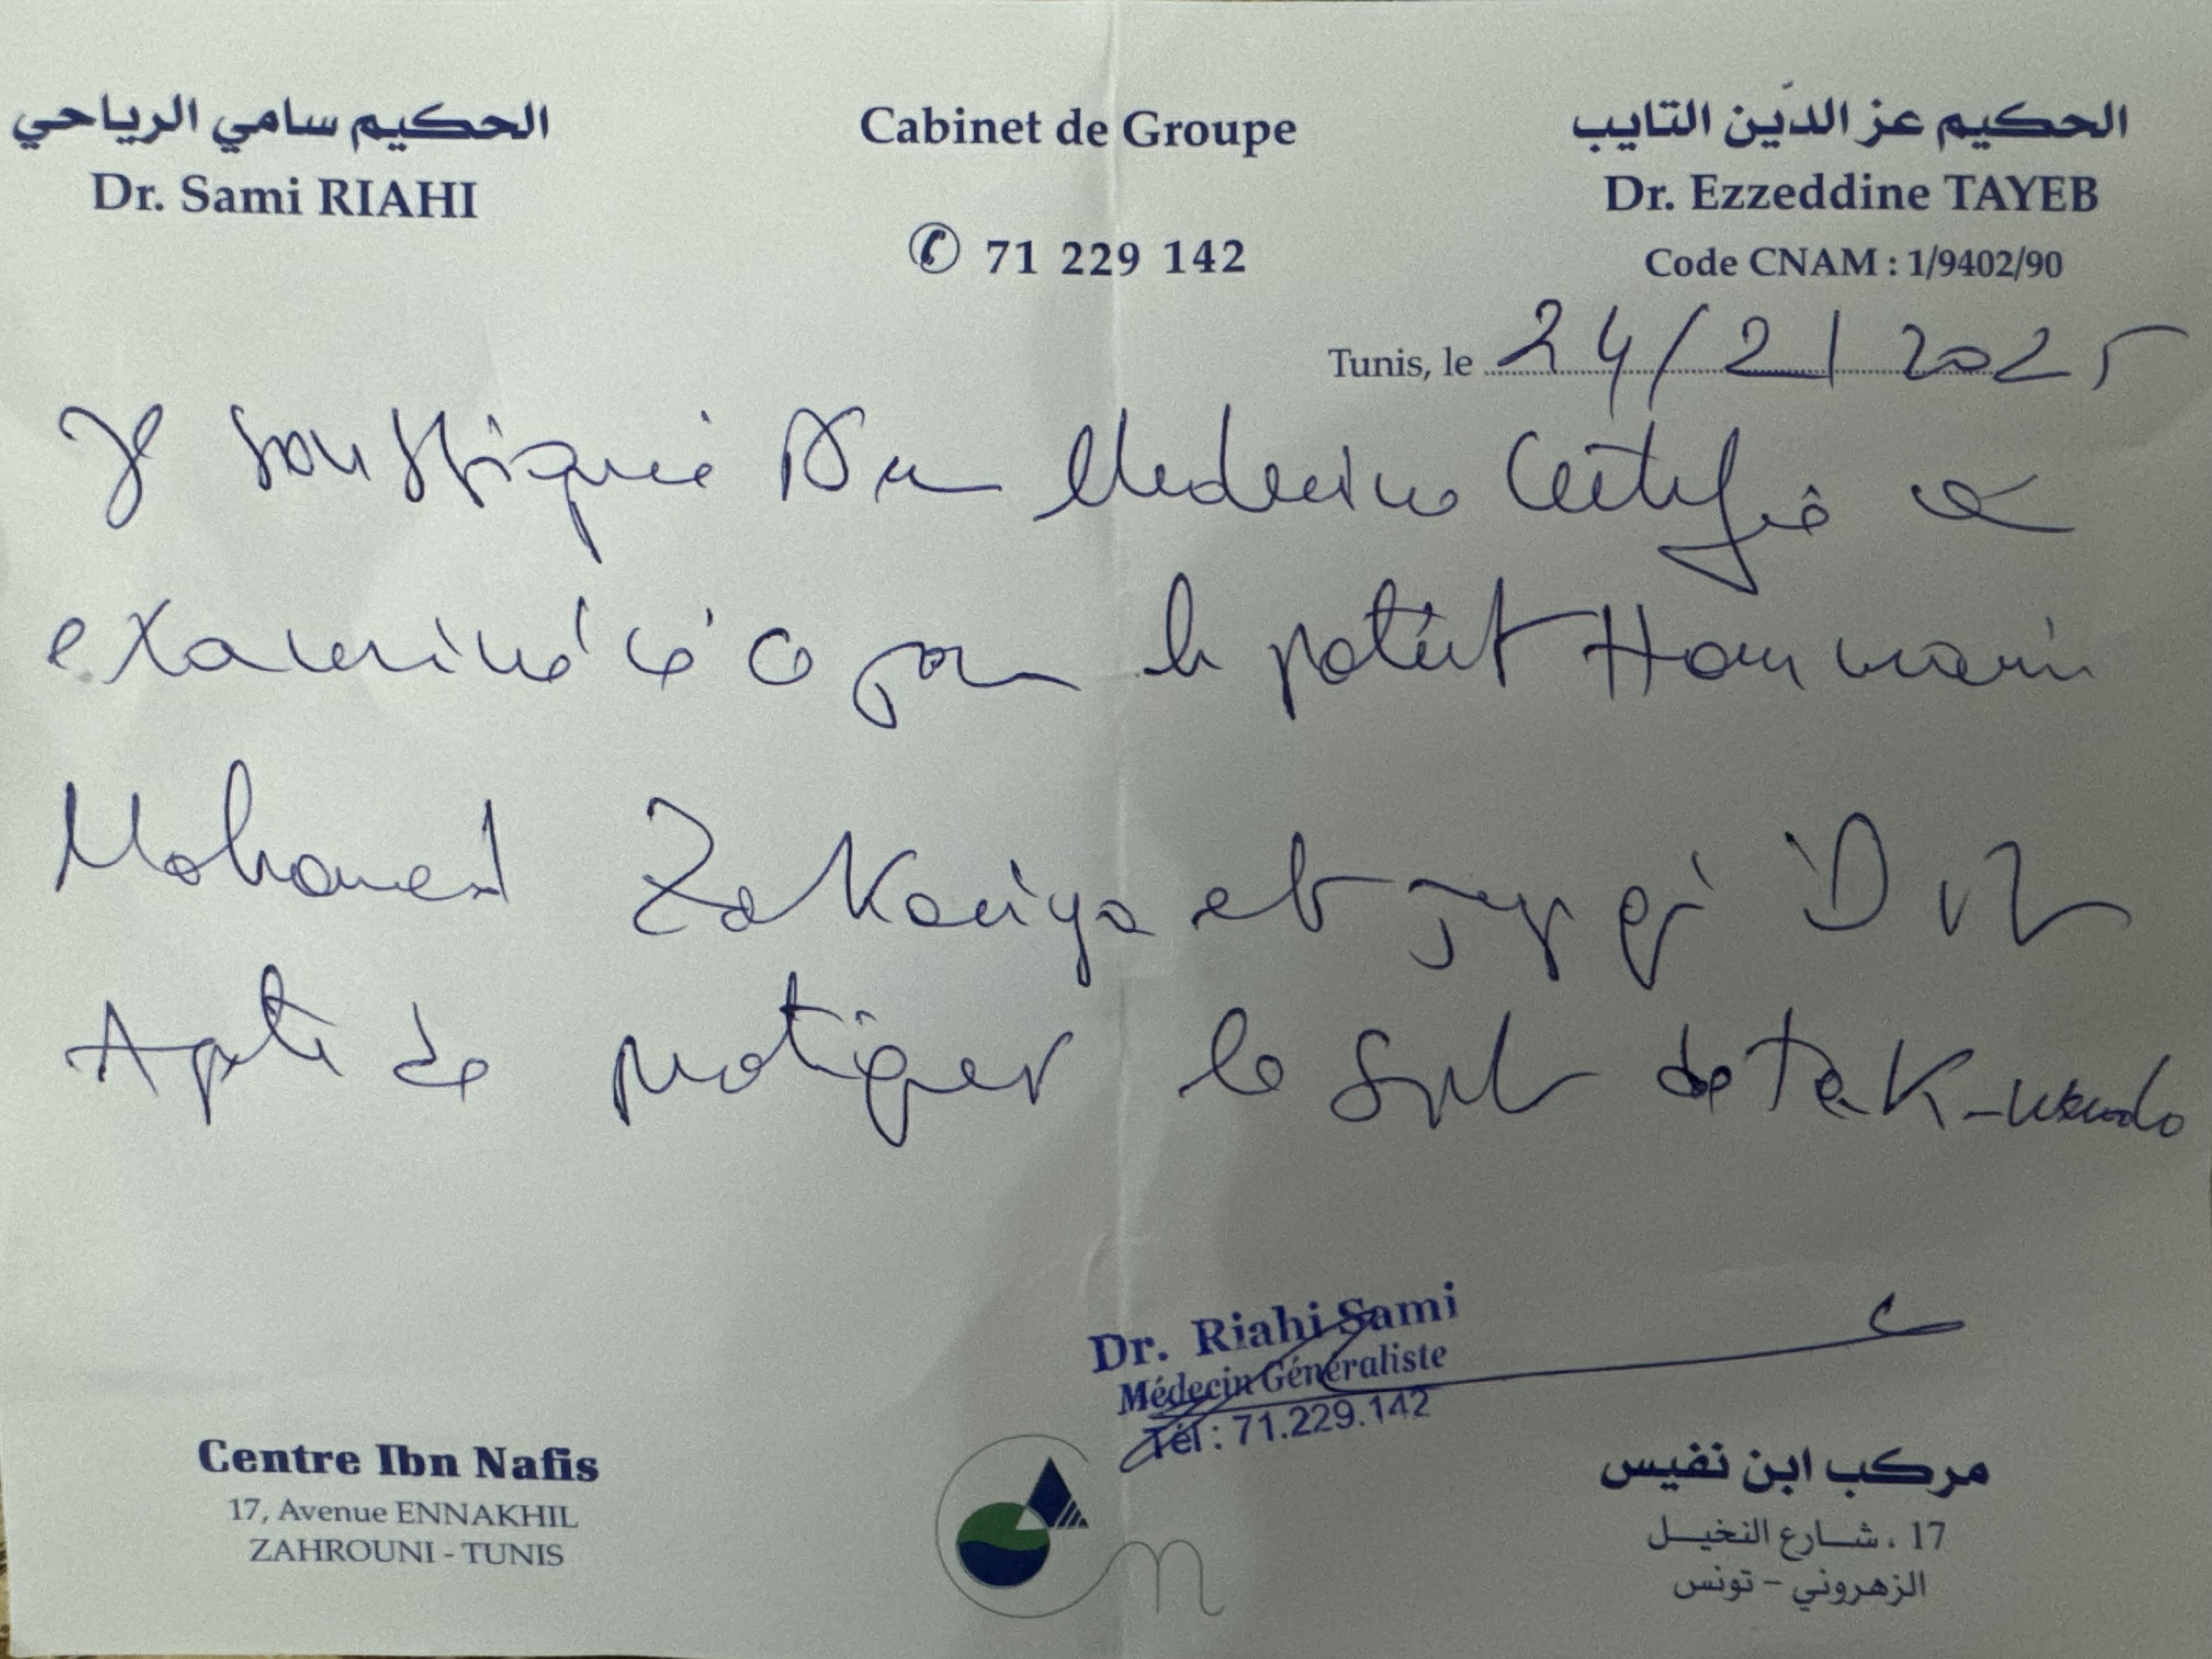 الحكيم سامي الرياحي
Dr. Sami RIAHI
Cabinet de Groupe
✆ 71 229 142
الحكيم عز الدّين التايب
Dr. Ezzeddine TAYEB
Code CNAM : 1/9402/90
Tunis, le 24/2/2025
Je soussigné Dr Medecin Certifie
examiné ce jour le patient Hammami
Mohamed Zakariya et
Apte de pratiquer le Sport de Taek-wondo
Dr. Riahi Sami
Médecin Généraliste
Tél : 71.229.142
Centre Ibn Nafis
17, Avenue ENNAKHIL
ZAHROUNI - TUNIS
مركب ابن نفيس
17 ، شارع النخيل
الزهروني - تونس